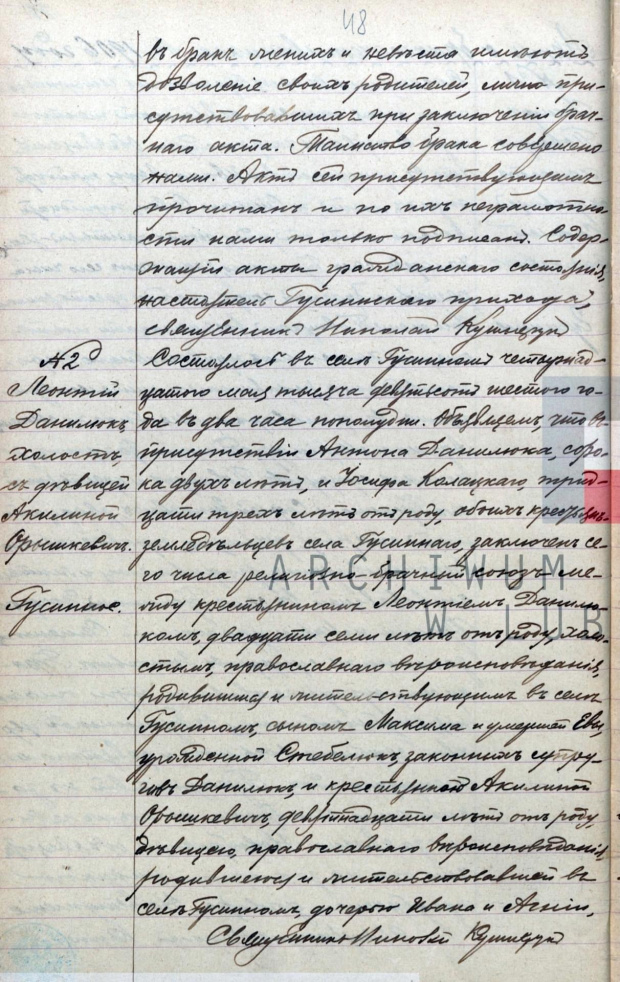 48
въ бракъ женихъ и невѣста имѣютъ
дозволеніе своихъ родителей, лично при-
сутствовавшихъ при заключеніи брач-
наго акта. Таинство брака совершено
нами. Актъ сей присутствующимъ
прочитанъ и по ихъ неграмотно-
сти нами только подписанъ. Содер-
жащій акты гражданскаго состоянія,
настоятель Гусиннскаго прихода,
священникъ Николай
№ 2
Леонтій
Данилюкъ,
холостъ,
съ дѣвицей
Акилиной
Орышкевичъ.
Гусинное.
Состоялось въ селѣ Гусинномъ четырнад-
цатого мая тысяча девятьсотъ шестого го-
да въ два часа пополудни. Объявляемъ, что въ
присутствіи Антона Данилюка, соро-
ка двухъ лѣтъ, и Іосифа Колацкаго, трид-
цати трехъ лѣтъ отъ роду, обоихъ крестьянъ-
земледѣльцевъ села Гусиннаго, заключенъ се-
го числа религіозно-брачный союзъ ме-
жду крестьяниномъ Леонтіемъ Данилю-
комъ, двадцати семи лѣтъ отъ роду, холо-
стымъ, православнаго вѣроисповѣданія,
родившимся и жительствующимъ въ селѣ
Гусинномъ, сыномъ Максима и умершей Евы,
урожденной Стебелюкъ, законныхъ супру-
говъ Данилюкъ, и крестьянкой Акилиной
Орышкевичъ, девятнадцати лѣтъ отъ роду,
дѣвицею, православнаго вѣроисповѣданія,
родившеюся и жительствовавшей въ
селѣ Гусинномъ, дочерью Ивана и Агніи,
Священникъ Николай
ARCHIWUM
W LUB